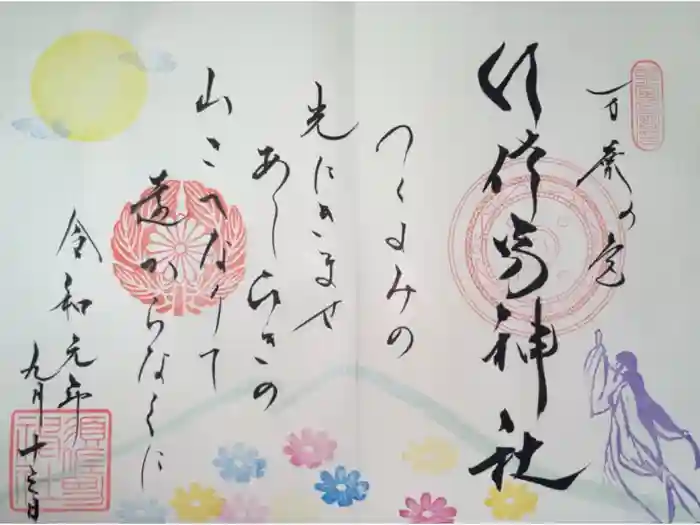 万葉の
須佐男神社
つくよみの
光にきませ
あしひきの
山こへなりて
遠からなくに
令和元年
九月十三日
須佐男神社